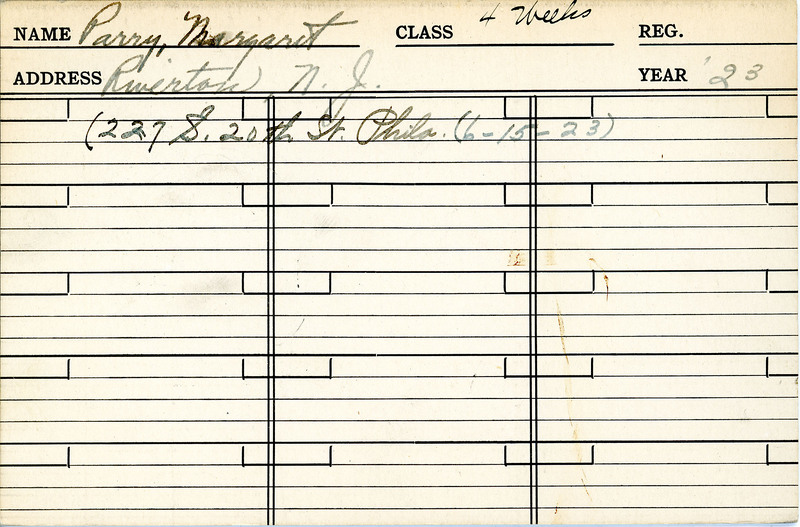 NAME Parry, Margaret CLASS 4 Weeks REG.
ADDRESS Riverton, N. J. YEAR '23
(227 S. 20th St. Phila. (6-15-23)